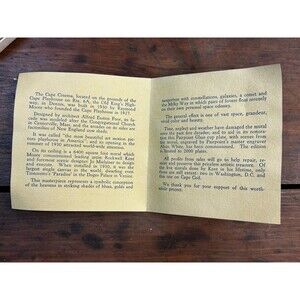 The Cape Cinema, located on the grounds of the
Cape Playhouse on Rte. 6A, the Old King's High-
way, in Dennis, was built in 1930 by Raymond
Moore who founded the Cape Playhouse in 1927.
Designed by architect Alfred Easton Poor, its fa-
cade was modeled after the Congregational Church
in Centerville, Mass. and the arcades on its sides are
facsimiles of New England cow sheds.
It was called "the most beautiful art motion pic-
ture theatre in existence", and its opening in the
summer of 1930 attracted world-wide attention.
On its ceiling is a 6400 square foot mural which
Moore commissioned leading artist Rockwell Kent
and foremost scenic designer Jo Mielziner to design
and execute. When installed in 1930, it was the
largest single canvas in the world, dwarfing even
Tintoretto's Paradise in the Doges Palace in Venice.
This masterpiece represents a symbolic conception
of the heavens in striking shades of blues, golds and
tangerines with constellations, galaxies, a comet and
the Milky Way in which pairs of lovers float serenely
on their own personal space odyssey.
The general effect is one of vast space, grandeur,
vivid color and beauty.
Time, neglect and weather have damaged the mural
over the past five decades, and to aid in its restora-
tion this Pairpoint Glass cup plate, with stones from
the mural, sculpted by Pairpoint's master engraver
John White, has been commissioned. The edition
is limited to 2000 plates.
All profits from sales will go to help repair, re-
store and preserve this priceless artistic treasure. Of
the six murals done by Kent in his lifetime, only
four are still extant: two in Washington, D.C. and
this one on Cape Cod.
We thank you for your support of this worth-
while project.